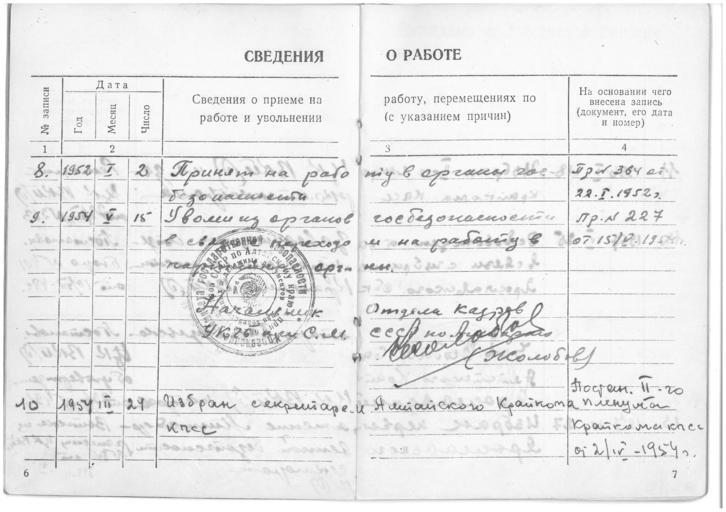 СВЕДЕНИЯ О РАБОТЕ
№ записи
Дата
Год
Месяц
Число
Сведения о приеме на работу, перемещениях по
работе и увольнении (с указанием причин)
На основании чего
внесена запись
(документ, его дата
и номер)
1 2 3 4
8. 1952 I 2 Принят на работу в органы гос- Пр № 364 от
безопасности 22.I.1952г.
9. 1954 V 15 Уволен из органов госбезопасности Пр. № 227
в связи с переходом на работу в от 15/V-1954г.
органы.
Начальник Отдела кадров
УКГБ при С.М. СССР по
(Жолобов)
10 1954 III 29 Избран секретарем Алтайского Крайкома
КПСС
Постан. II-го
пленума
Крайкома КПСС
от 2/IV-1954г.
6 7